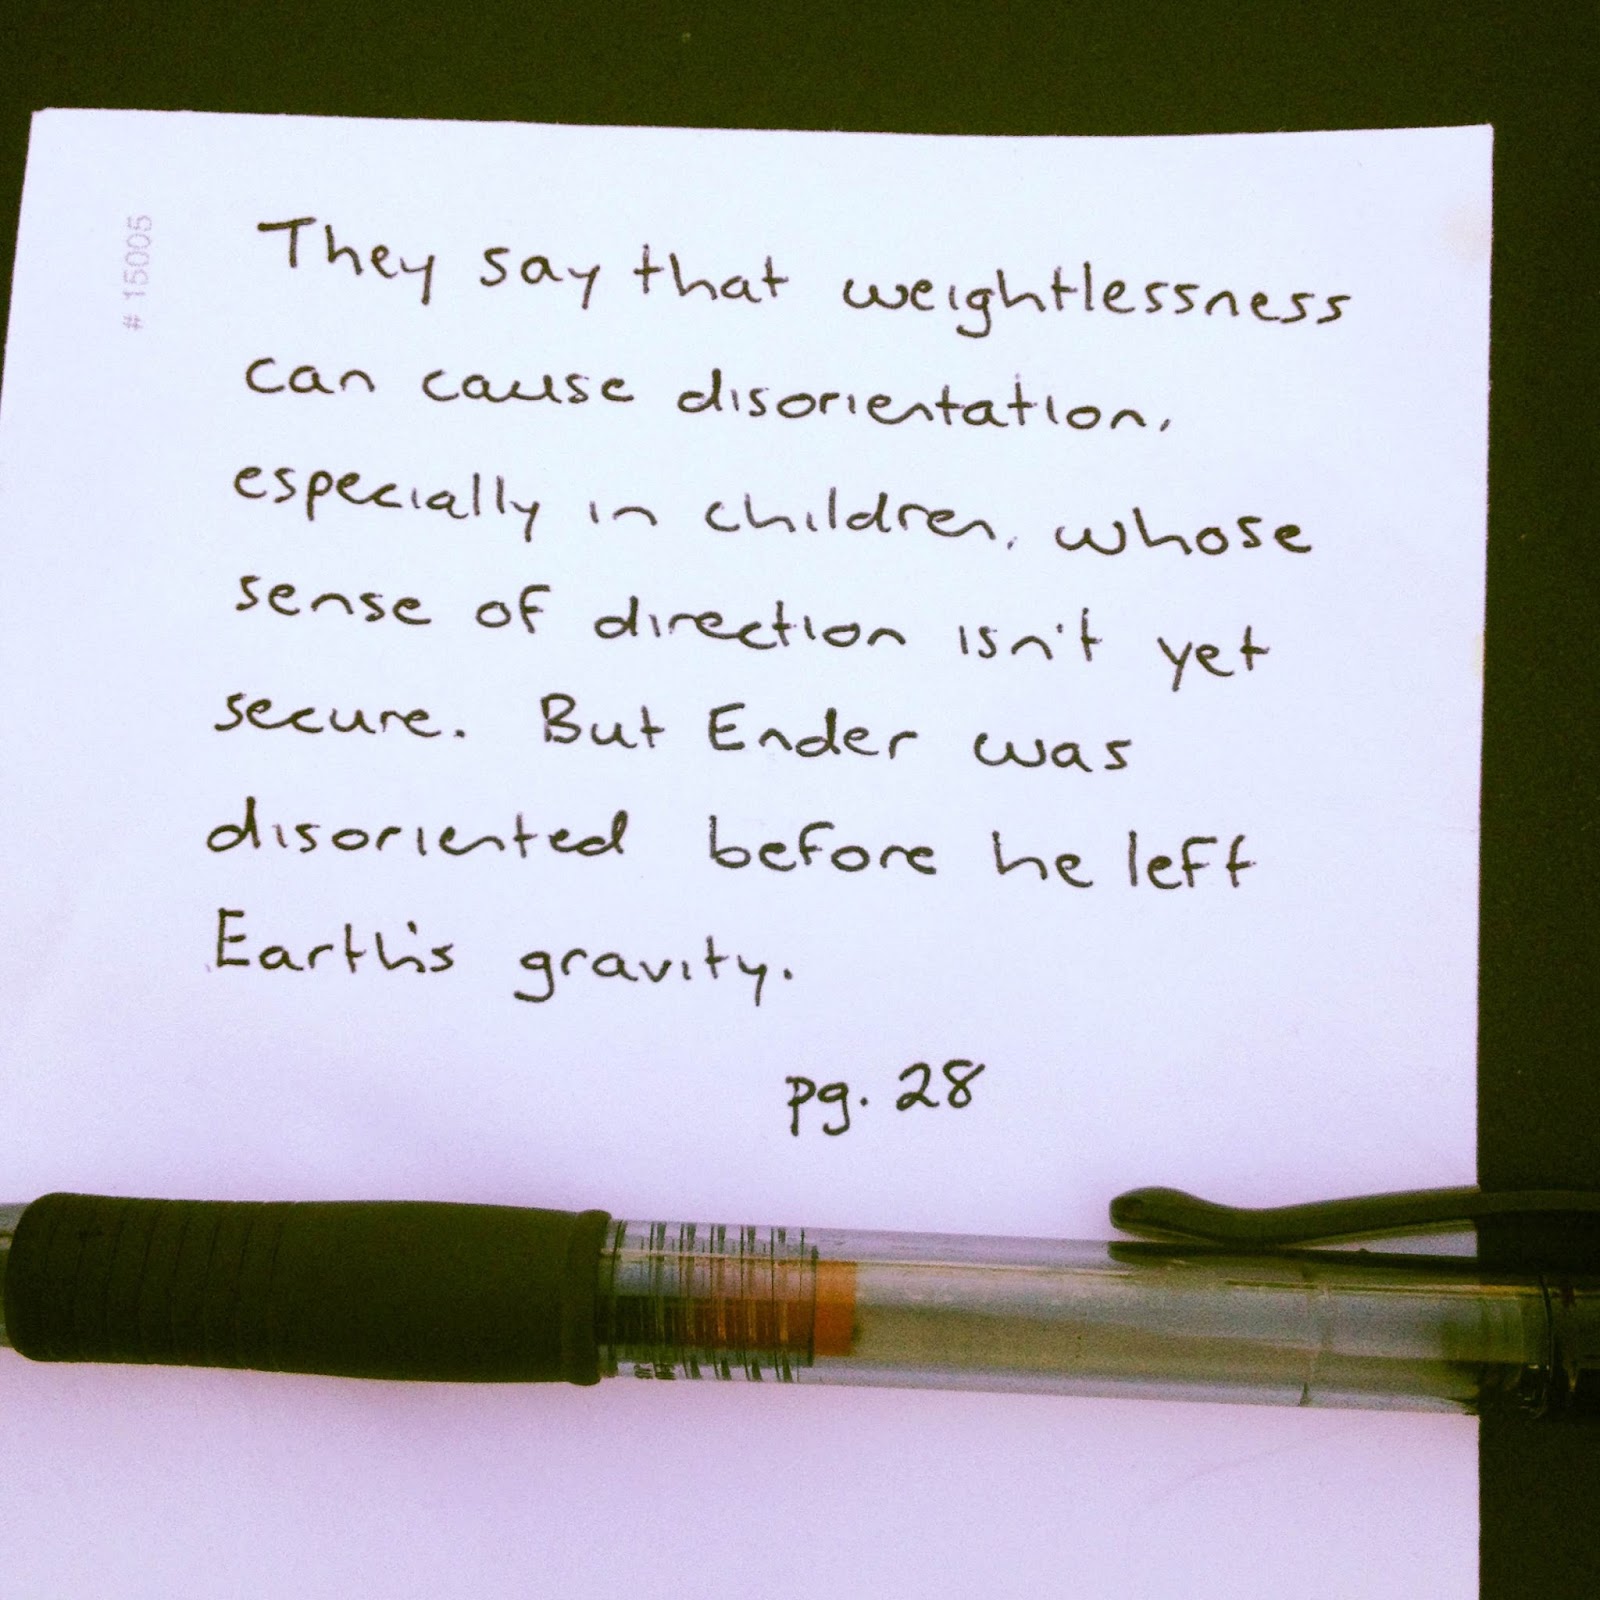 # 15005
They say that weightlessness
can cause disorientation,
especially in children, whose
sense of direction isn't yet
secure. But Ender was
disoriented before he left
Earth's gravity.
pg. 28